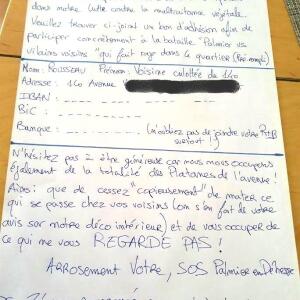 dans notre lutte contre la maltraitance végétale.
Veuillez trouver ci-joint un bon d'adhésion afin de
participer concrètement à la bataille "Palmier vs
vilains voisins "qui fait rage dans le quartier (Pré rempli)
Nom: ROUSSEAU Prénom: Voisine culottée du 140
Adresse: 140 Avenue
IBAN:
BIC:
Banque: (n'oubliez pas de joindre votre RIB
surtout!)
N'hésitez pas à être généreuse car nous nous occupons
également de la totalité des Platanes de l'avenue!
Ainsi que de cessez "copieusement" de mater ce
qui se passe chez vos voisins (on s'en fait de votre
avis sur notre déco intérieur) et de vous occuper de
ce qui me vous REGARDE PAS!
ARROSEMENT Vôtre, SOS Palmier en Détresse